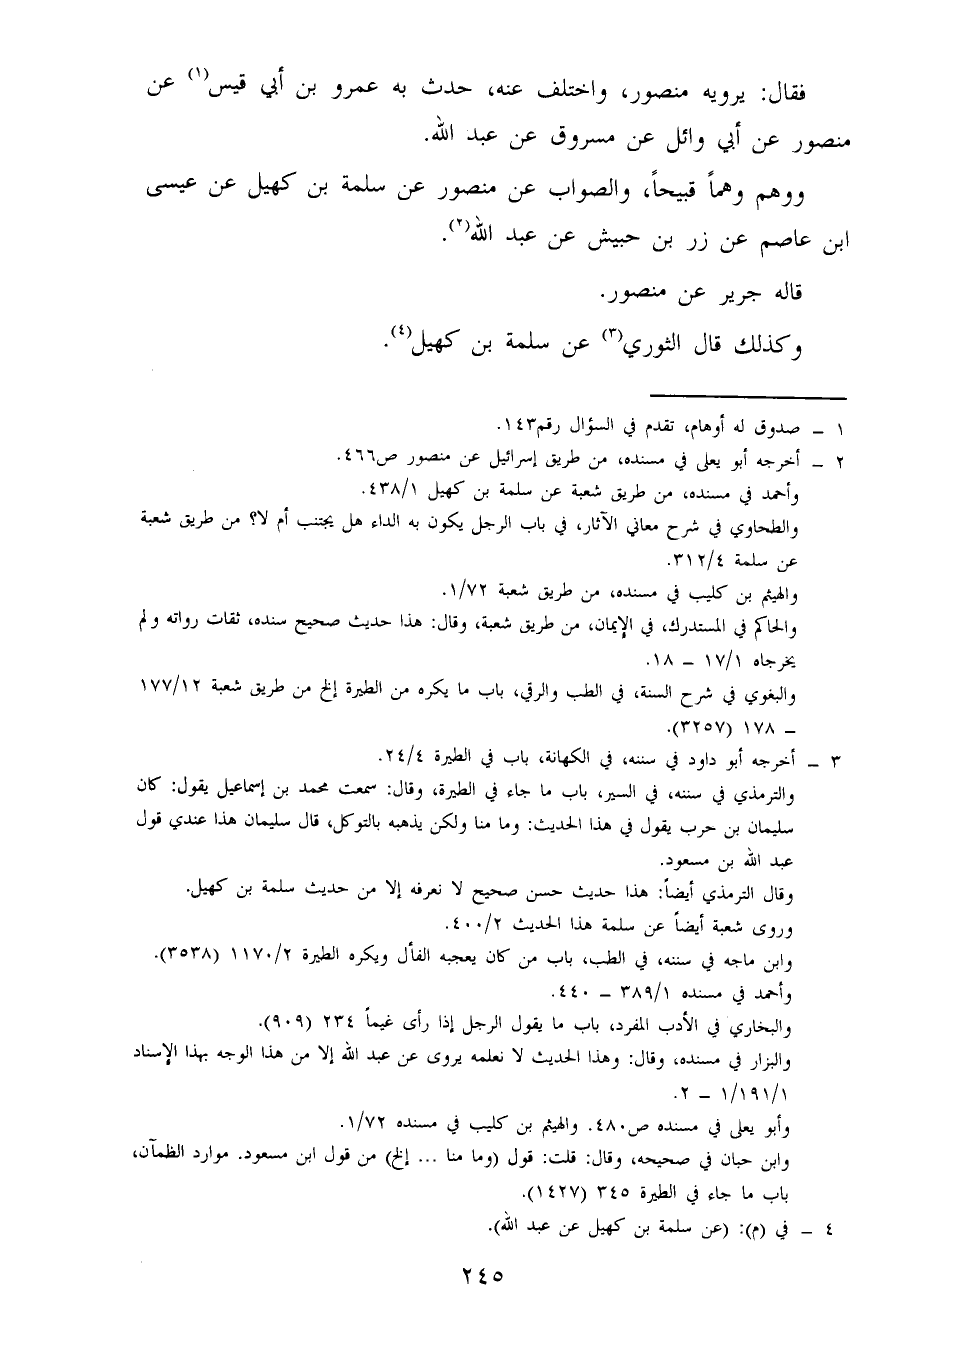 فقال: يرويه منصور، واختلف عنه، حدث به عمرو بن أبي قيس(١) عن
منصور عن أبي وائل عن مسروق عن عبد الله.
ووهم وهماً قبيحاً، والصواب عن منصور عن سلمة بن كهيل عن عيسى
ابن عاصم عن زر بن حبيش عن عبد الله(٢).
قاله جرير عن منصور.
وكذلك قال الثوري(٣) عن سلمة بن كهيل(٤).
١ – صدوق له أوهام، تقدم في السؤال رقم١٤٣.
٢ – أخرجه أبو يعلى في مسنده، من طريق إسرائيل عن منصور ص٤٦٦.
وأحمد في مسنده، من طريق شعبة عن سلمة بن كهيل ٤٣٨/١.
والطحاوي في شرح معاني الآثار، في باب الرجل يكون به الداء هل يجتنب أم لا؟ من طريق شعبة
عن سلمة ٣١٢/٤.
والهيثم بن كليب في مسنده، من طريق شعبة ١/٧٢.
والحاكم في المستدرك، في الإيمان، من طريق شعبة، وقال: هذا حديث صحيح سنده، ثقات رواته ولم
يخرجاه ١٧/١ – ١٨.
والبغوي في شرح السنة، في الطب والرقي، باب ما يكره من الطيرة إلخ من طريق شعبة ١٧٧/١٢
– ١٧٨ (٣٢٥٧).
٣ – أخرجه أبو داود في سننه، في الكهانة، باب في الطيرة ٢٤/٤.
والترمذي في سننه، في السير، باب ما جاء في الطيرة، وقال: سمعت محمد بن إسماعيل يقول: كان
سليمان بن حرب يقول في هذا الحديث: وما منا ولكن يذهبه بالتوكل، قال سليمان هذا عندي قول
عبد الله بن مسعود.
وقال الترمذي أيضاً: هذا حديث حسن صحيح لا نعرفه إلا من حديث سلمة بن كهيل.
وروى شعبة أيضاً عن سلمة هذا الحديث ٤٠٠/٢.
وابن ماجه في سننه، في الطب، باب من كان يعجبه الفأل ويكره الطيرة ١١٧٠/٢ (٣٥٣٨).
وأحمد في مسنده ٣٨٩/١ – ٤٤٠.
والبخاري في الأدب المفرد، باب ما يقول الرجل إذا رأى غيماً ٢٣٤ (٩٠٩).
والبزار في مسنده، وقال: وهذا الحديث لا نعلمه يروى عن عبد الله إلا من هذا الوجه بهذا الإسناد
١/١٩١/١ – ٢.
وأبو يعلى في مسنده ص٤٨٠. والهيثم بن كليب في مسنده ١/٧٢.
وابن حبان في صحيحه، وقال: قلت: قول (وما منا ... إلخ) من قول ابن مسعود. موارد الظمآن،
باب ما جاء في الطيرة ٣٤٥ (١٤٢٧).
٤ – في (م): (عن سلمة بن كهيل عن عبد الله).
٢٤٥